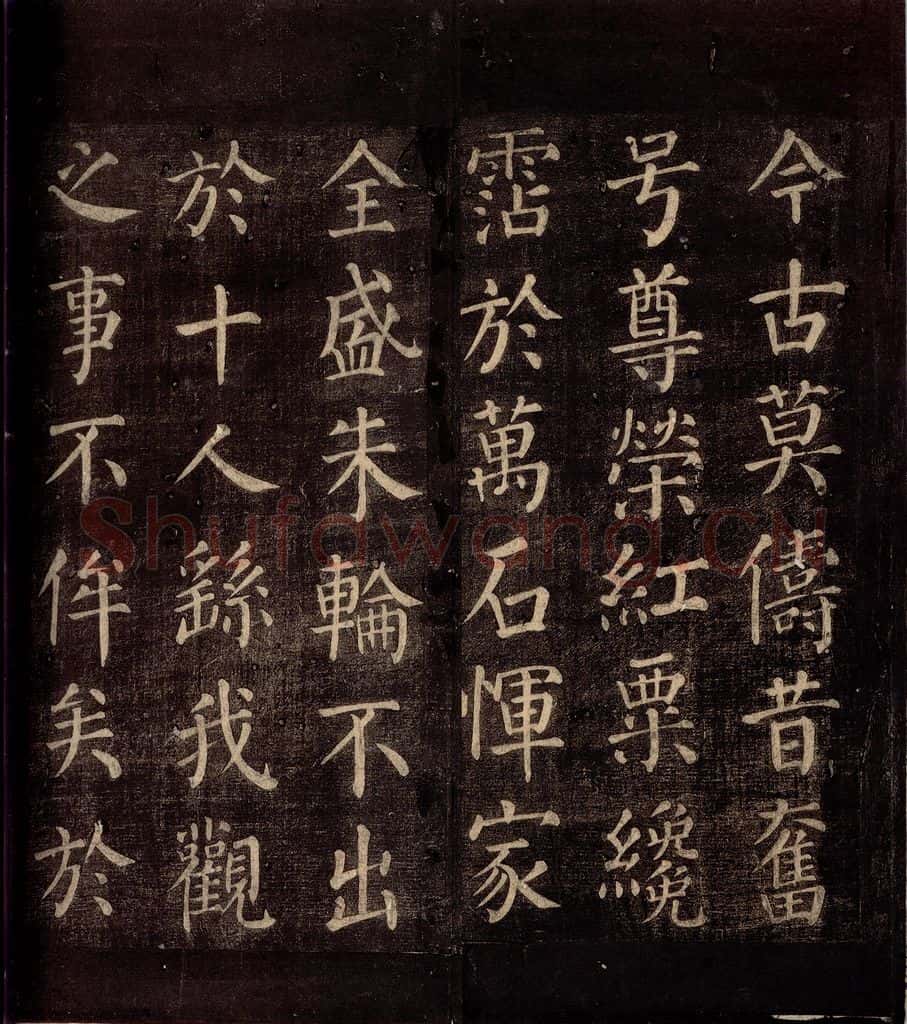 今古莫儔昔奮
号尊榮紅粟纔
霑於萬石惲家
全盛朱輪不出
於十人繇我觀
之事不侔矣於
Shufawang.CN